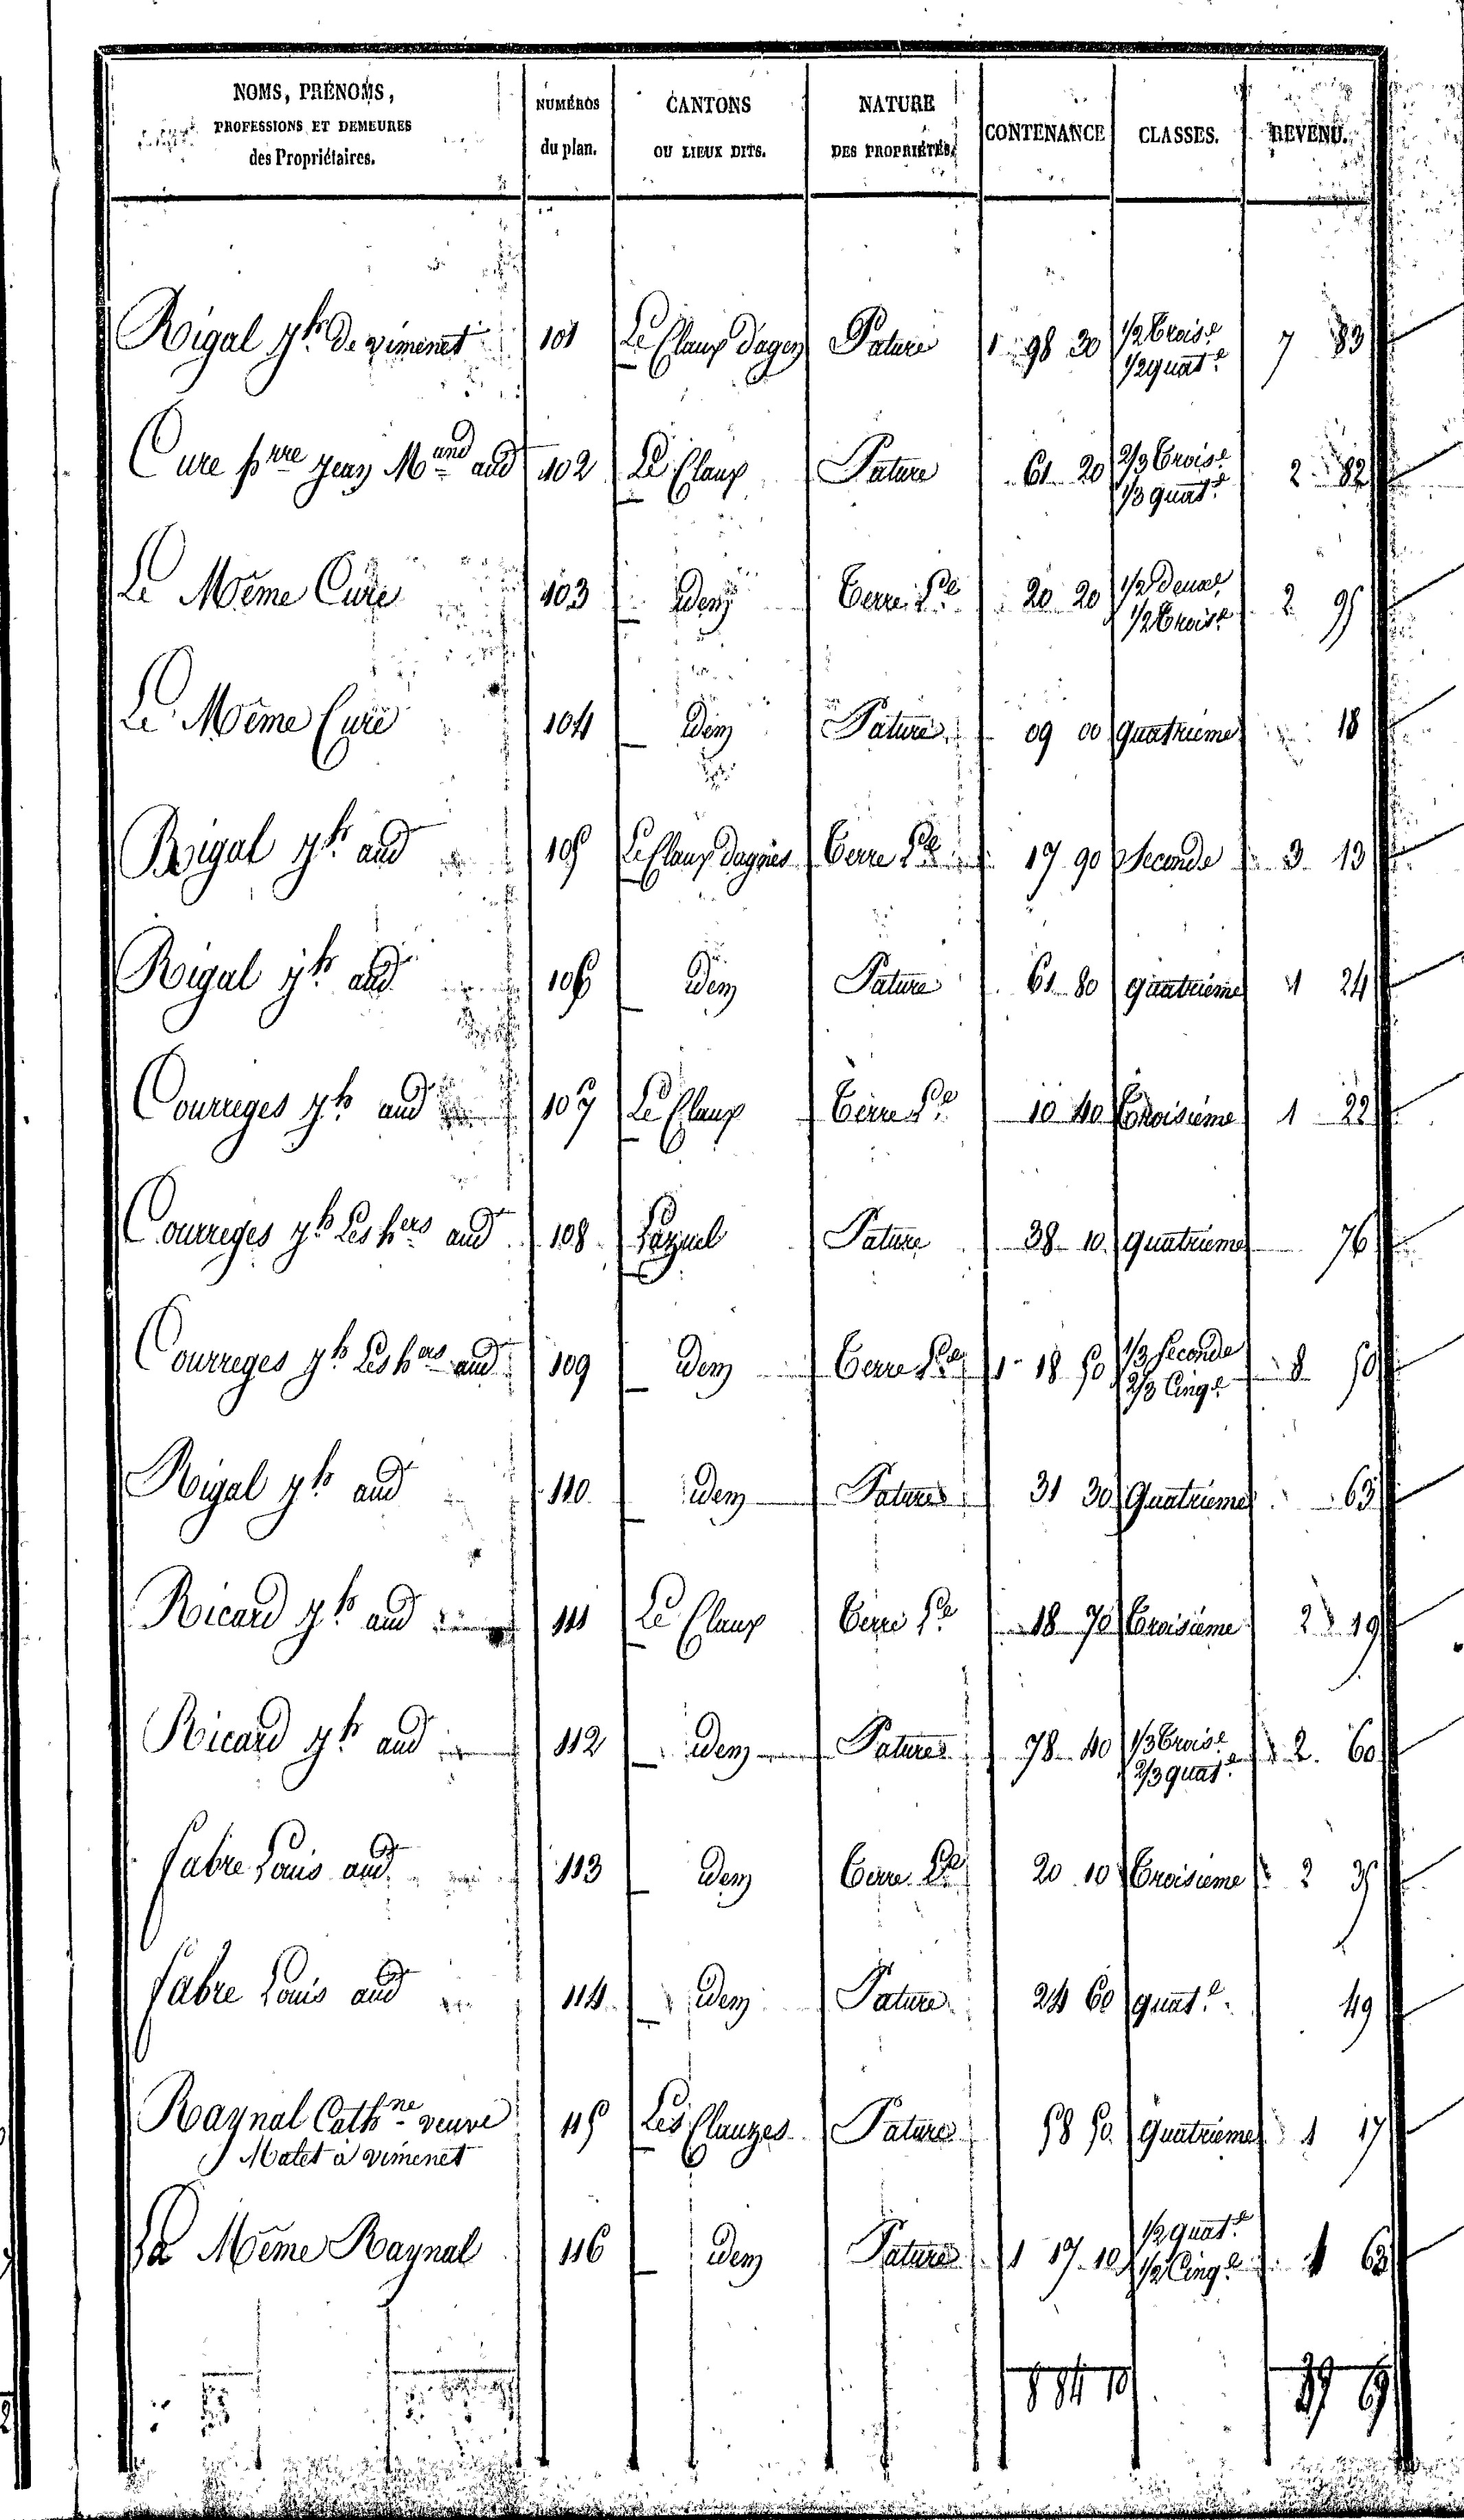 NOMS, PRÉNOMS, PROFESSIONS ET DEMEURES des Propriétaires. NUMÉROS du plan. CANTONS OU LIEUX DITS. NATURE DES PROPRIÉTÉS. CONTENANCE CLASSES. REVENU.
Rigal jh. de vimenet 101 Le Claux dagen Pature 1 98 30 1/2 Trois.e 1/2 quat.e 7 83
Cure pre jean Mand aud 102 Le Claux Pature 61 20 2/3 Trois.e 1/3 quat.e 2 82
Le Même Cure 103 idem Terre Ple 20 20 1/2 Deuxe 1/2 Trois.e 2 95
Le Même Cure 104 idem Pature 09 00 quatrieme 18
Rigal jh. aud 105 Le Claux dagnes Terre Ple 17 90 Seconde 3 13
Rigal jh. aud 106 idem Pature 61 80 quatrieme 1 24
Courreges jh. aud 107 Le Claux Terre Ple 10 40 Troisieme 1 22
Courreges jh. Les hers aud 108 Pature 38 10 quatrieme 76
Courreges jh. Les hers aud 109 idem Terre Ple 1 18 50 1/3 Seconde 2/3 Cinq.e 8 50
Rigal jh. aud 110 idem Pature 31 30 Quatrieme 63
Ricard jh. aud 111 Le Claux Terre Ple 18 70 Troisieme 2 19
Ricard jh. aud 112 idem Pature 78 40 1/3 Trois.e 2/3 quat.e 2 60
fabre Louis aud 113 idem Terre Ple 20 10 Troisieme 2 35
fabre Louis aud 114 idem Pature 24 60 quat.e 49
Raynal Cathne veuve 115 Les Clauzes Pature 58 50 Quatrieme 1 17
Malet à vimenet
La Même Raynal 116 idem Pature 1 17 10 1/2 quat.e 1/2 Cinq.e 1 63
8 84 10 39 69